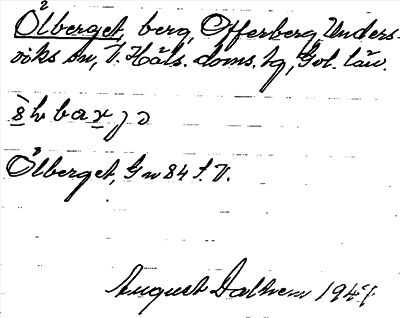 Ölberget, berg, Offerberg, Unders-
viks sn, V. Häls. doms. hg, Gvl. län.
Ölberget, Gw 84 f. V.
August Dalhem 194